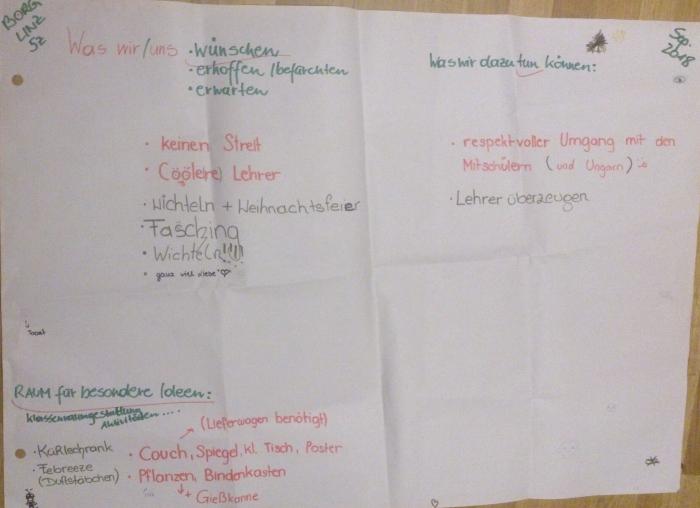 BORG
LINZ
5z
Was wir/uns • wünschen
• erhoffen / befürchten
• erwarten
• keinen Streit
• Cöö(lere) Lehrer
• Wichteln + Weihnachtsfeier
• Fasching
• Wichteln!!!!
• ganz viel Liebe ♡
Sep.
2018
Was wir dazu tun können:
• respektvoller Umgang mit den
Mitschülern (und Ungarn) :)
• Lehrer überzeugen
RAUM für besondere Ideen:
Klassenraumgestaltung
Aktivitäten....
(Lieferwagen benötigt)
• Kühlschrank
• Febreeze
(Duftstäbchen)
• Couch, Spiegel, kl. Tisch, Poster
• Pflanzen,
+ Gießkanne